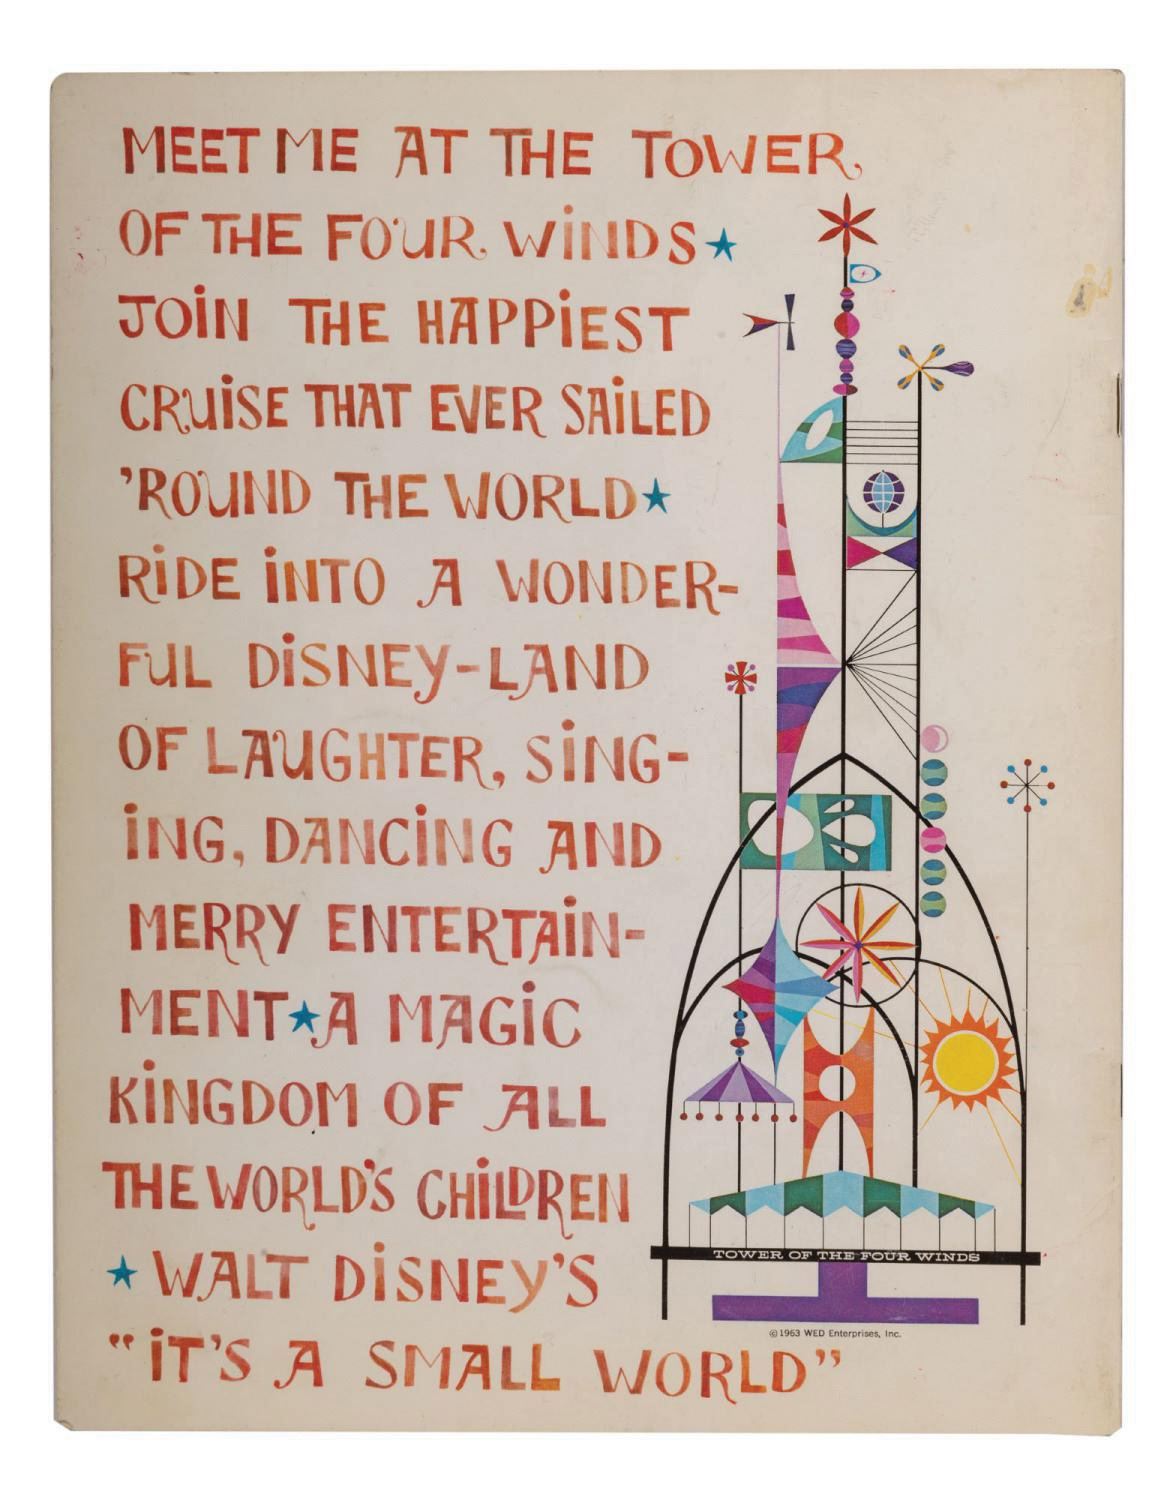 MEET ME AT THE TOWER
OF THE FOUR WINDS★
JOIN THE HAPPIEST
CRUISE THAT EVER SAILED
'ROUND THE WORLD★
RIDE INTO A WONDER-
FUL DISNEY-LAND
OF LAUGHTER, SING-
ING, DANCING AND
MERRY ENTERTAIN-
MENT★A MAGIC
KINGDOM OF ALL
THE WORLD'S CHILDREN
★WALT DISNEY'S
"IT'S A SMALL WORLD"
TOWER OF THE FOUR WINDS
©1963 WED Enterprises, Inc.